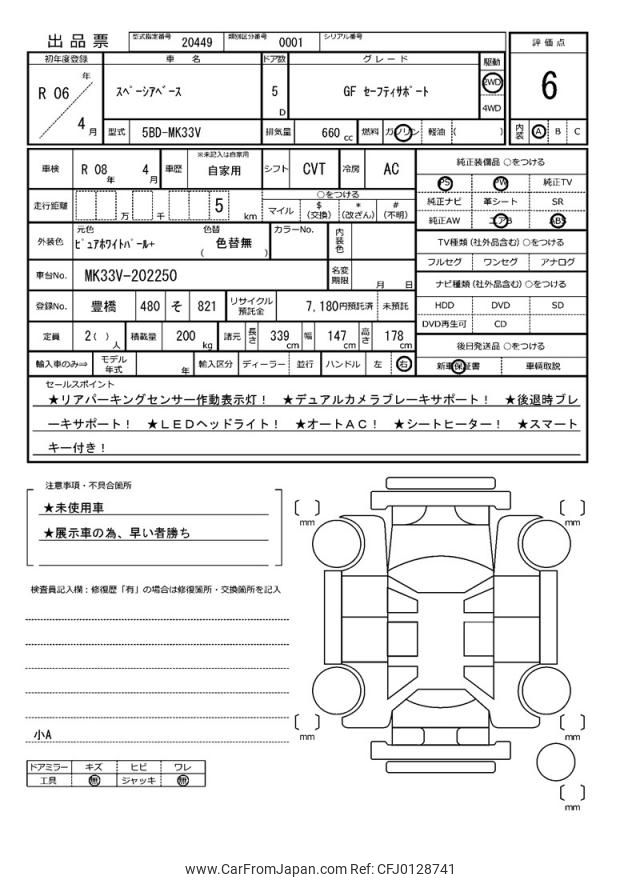 出品票 型式指定番号 20449 類別区分番号 0001 シリアル番号
評価点
初年度登録 車名 ドア数 グレード 駆動
R 06 年 スペーシアベース 5 D GF セーフティサポート 2WD 6
4WD
4 月 型式 5BD-MK33V 排気量 660 cc 燃料 ガソリン 軽油 ( ) 内装 A B C
車検 R 08 年 4 月 車歴 ※未記入は自家用 自家用 シフト CVT 冷房 AC 純正装備品 ○をつける
PS PW 純正TV
走行距離 万 千 5 km ○をつける 純正ナビ 革シート SR
マイル $ (交換) * (改ざん) # (不明) 純正AW エアB ABS
外装色 元色 ピュアホワイトパール+ 色替 ( 色替無 ) カラーNo. 内装色 TV種類 (社外品含む) ○をつける
フルセグ ワンセグ アナログ
車台No. MK33V-202250 名変期限 月 日 ナビ種類 (社外品含む) ○をつける
登録No. 豊橋 480 そ 821 リサイクル預託金 7,180円預託済 未預託 HDD DVD SD
DVD再生可 CD
定員 2( ) 人 積載量 200 kg 諸元 長さ 339 cm 幅 147 cm 高さ 178 cm 後日発送品 ○をつける
輸入車のみ⇒ モデル年式 年 輸入区分 ディーラー 並行 ハンドル 左 右 新車保証書 車輌取説
セールスポイント
★リアパーキングセンサー作動表示灯! ★デュアルカメラブレーキサポート! ★後退時ブレ
ーキサポート! ★LEDヘッドライト! ★オートAC! ★シートヒーター! ★スマート
キー付き!
注意事項・不具合箇所
★未使用車
★展示車の為、早い者勝ち
mm mm
検査員記入欄:修復歴「有」の場合は修復箇所・交換箇所を記入
小A
mm mm
ドアミラー キズ ヒビ ワレ
工具 無 ジャッキ 無
mm
www.CarFromJapan.com Ref: CFJ0128741